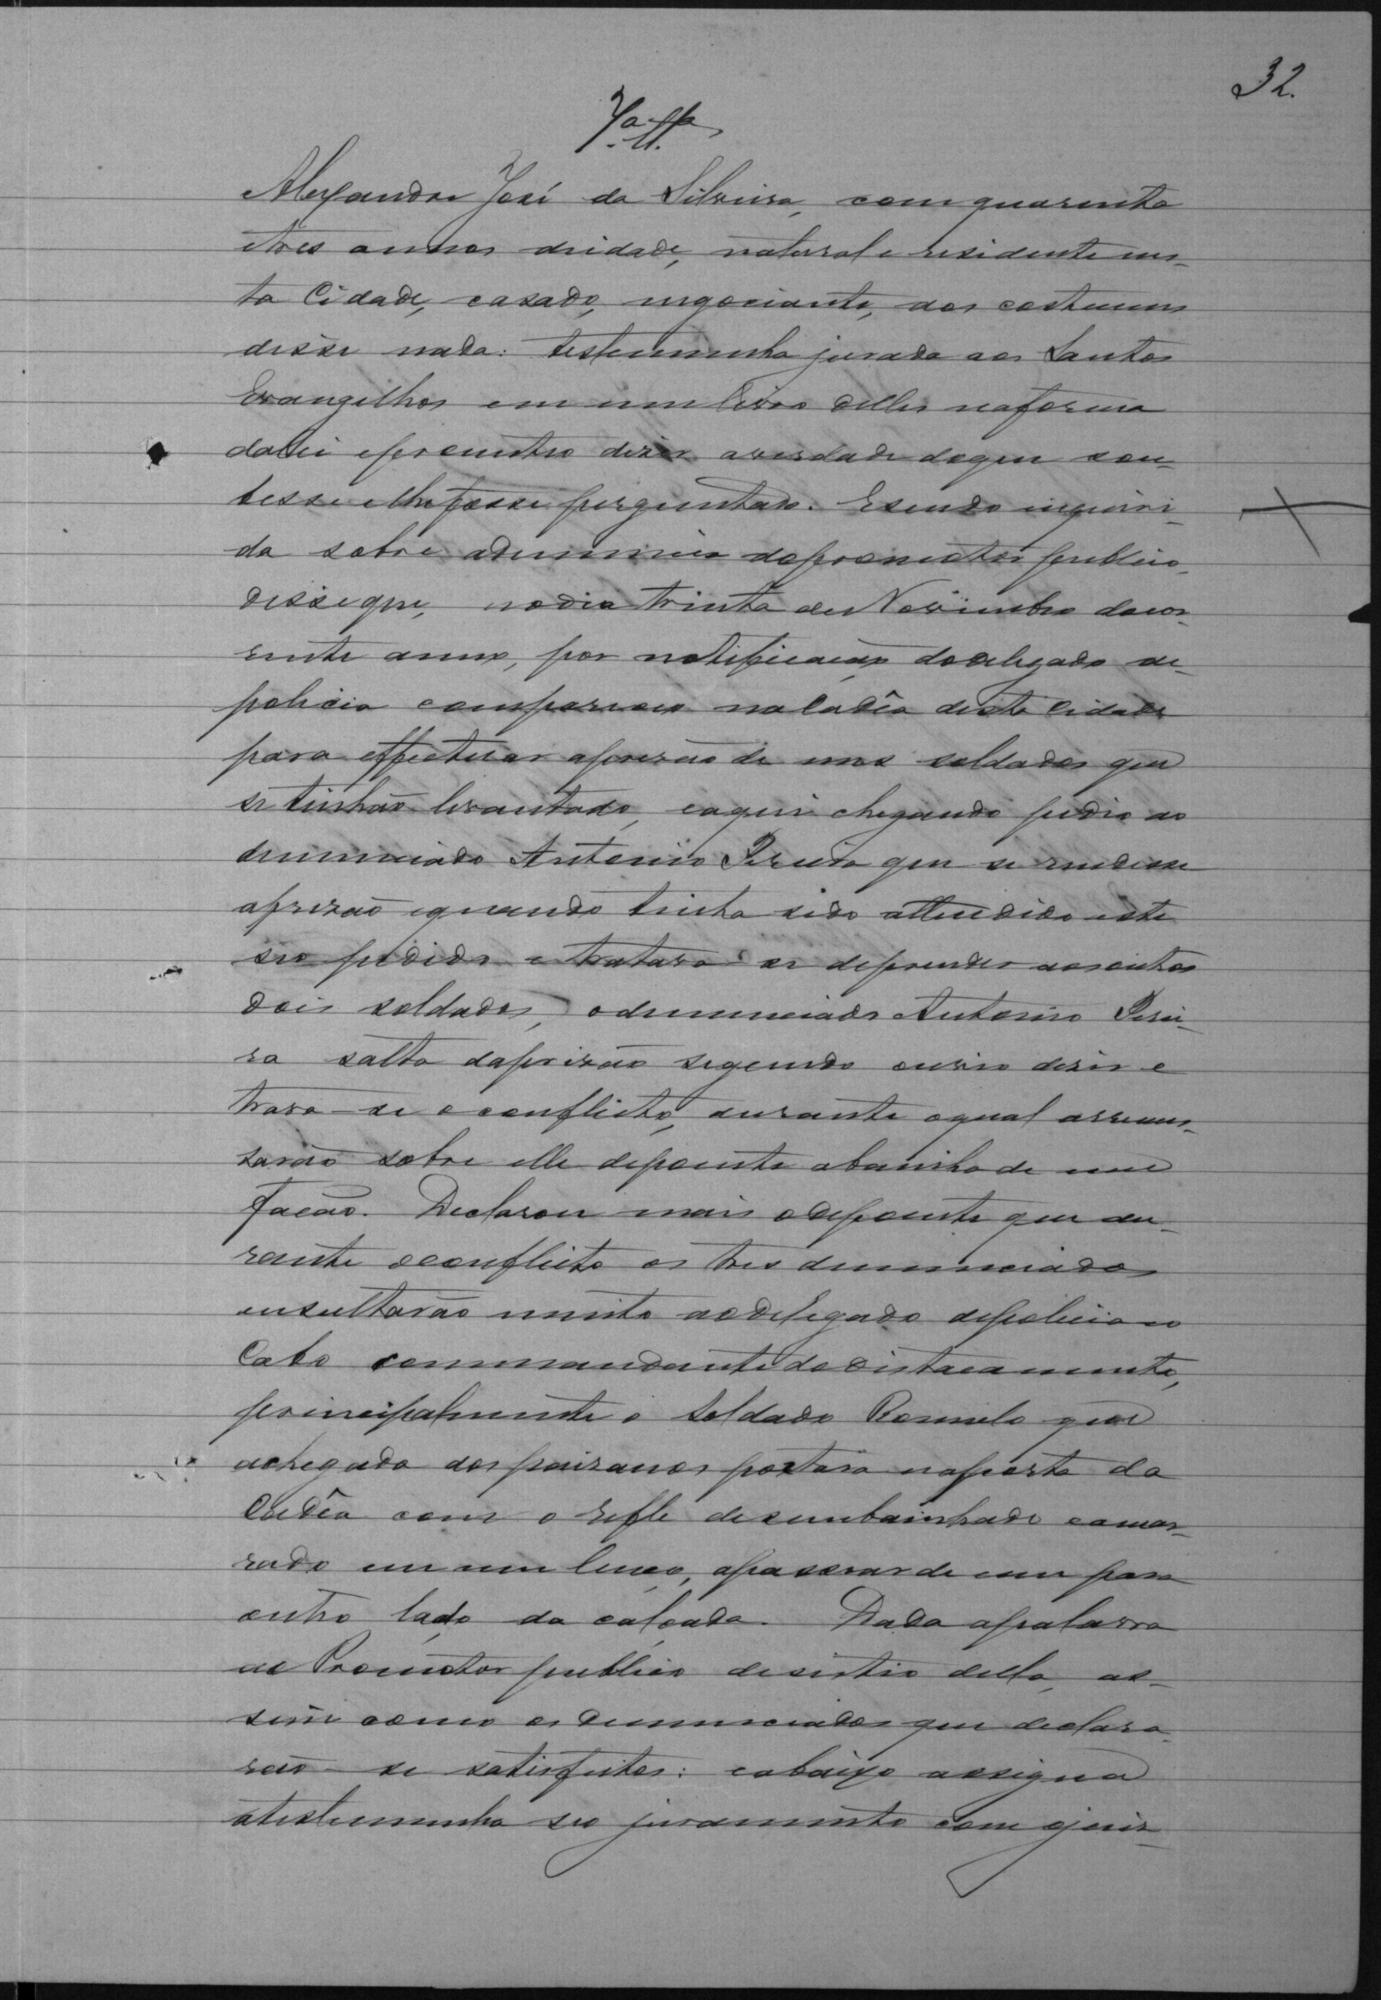 32.
7ª. Tª.
Alexandre José da Silveira, com quarenta
e tres annos de idade, natural e residente nes-
ta Cidade, casado, negociante, aos costumes
disse nada: testemunha jurada aos Santos
Evangelhos em um livro delles na forma
da lei e prometteo dizer a verdade do que sou-
besse e lhe fosse perguntado. E sendo inqueri-
da sobre a denuncia do promotor publico,
disse que, no dia trinta de Novembro do cor-
rente anno, por notificação do delegado de
policia compareceo na Cadêa desta Cidade
para effectuar a prezão de uns soldados que
se tinhão levantado, e aqui chegando pedio ao
denunciado Antonio Pereira que se rendesse
a prezão e quando tinha sido attendido este
seo pedido e tratava-se de prender aos outros
dois soldados, o denunciado Antonio Perei-
ra salta da prizão segundo ouvio dizer e
trava-se o conflicto, durante o qual arremes-
sarão sobre elle depoente a bainha de um
facão. Declarou mais o depoente que du-
rante o conflicto os tres denunciados
insultarão muito ao delegado de policia e o
Cabo commandante do destacamento,
principalmente o soldado Romulo que
a chegada dos paizanos postara na porta da
Cadêa com o refle desembainhado e amar-
rado em um lenço, a passear de um para
outro lado da calçada. Dada a palavra
ao Promotor publico desistio della, as-
sim como os denunciados que declara-
rão-se satisfeitos: e abaixo assigna
a testemunha seo juramento com o juiz